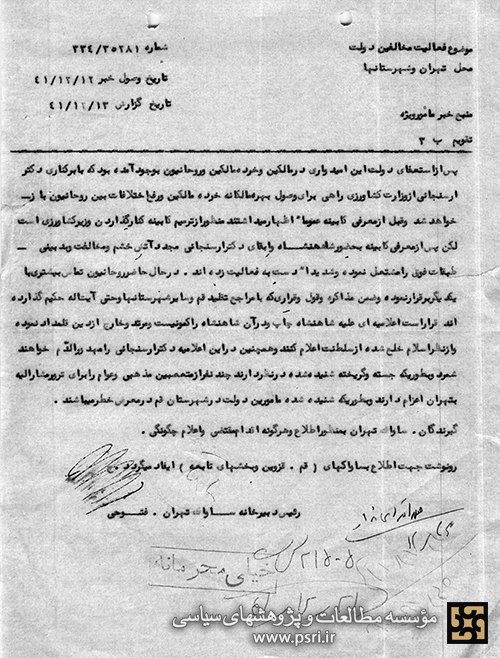 موضوع فعالیت مخالفین دولت
شماره ۳۳۴/۳۵۲۸۱
محل تهران وشهرستانها
تاریخ وصول خبر ۴۱/۱۲/۱۲
تاریخ گزارش ۴۱/۱۲/۱۳
منبع خبر مامورویژه
تقویم ب ۳
پس ازاستعفای دولت این امیدواری درمالکین وخرده مالکین وروحانیون بوجودآمده بود که بابرکناری دکتر
ارسنجانی ازوزارت کشاورزی راهی برای وصول بهره مالکانه خرده مالکین ورفع اختلافات بین روحانیون باز
خواهد شد وقبل ازمعرفی کابینه عموما" اظهارمیداشتند منظورازترمیم کابینه کنارگذاردن وزیرکشاورزی است
لکن پس ازمعرفی کابینه بحضورشاهنشاه وابقای دکترارسنجانی مجددآتش خشم ومخالفت وبدبینی
طبقات فوق رامشتعل نموده وشدیدا" دست به فعالیت زده اند . درحال حاضرروحانیون تماس بیشتری با
یکدیگربرقرارنموده وضمن مذاکره وقول وقراری که بامراجع تقلید قم وسایرشهرستانها وحتی آیت اله حکیم گذارده
اند قراراست اعلامیه ای علیه شاهنشاه چاپ ودرآن شاهنشاه راکمونیست ومرتد وخارج ازدین قلمداد نموده
وازنظراسلام خلع شده ازسلطنت اعلام کنند وهمچنین دراین اعلامیه دکترارسنجانی رامهدورالدم خواهند
شمرد وبطوریکه جسته وگریخته شنیده شده درنظردارند چند نفرازمتعصبین مذهبی وعوام رابرای ترورمشارالیه
بتهران اعزام دارند وبطوریکه شنیده شده مامورین دولت درشهرستان قم درمعرض خطرمیباشند .
گیرندگان . ساواک تهران بمنظوراطلاع وهرگونه اقدام مقتضی واعلام چگونگی .
رونوشت جهت اطلاع بساواکهای ( قم . قزوین وبخشهای تابعه ) ایفاد میگردد
رئیس دبیرخانه ساواک تهران . فتوحی
خیلی محرمانه
مؤسسه مطالعات و پژوهشهای سیاسی
www.psri.ir